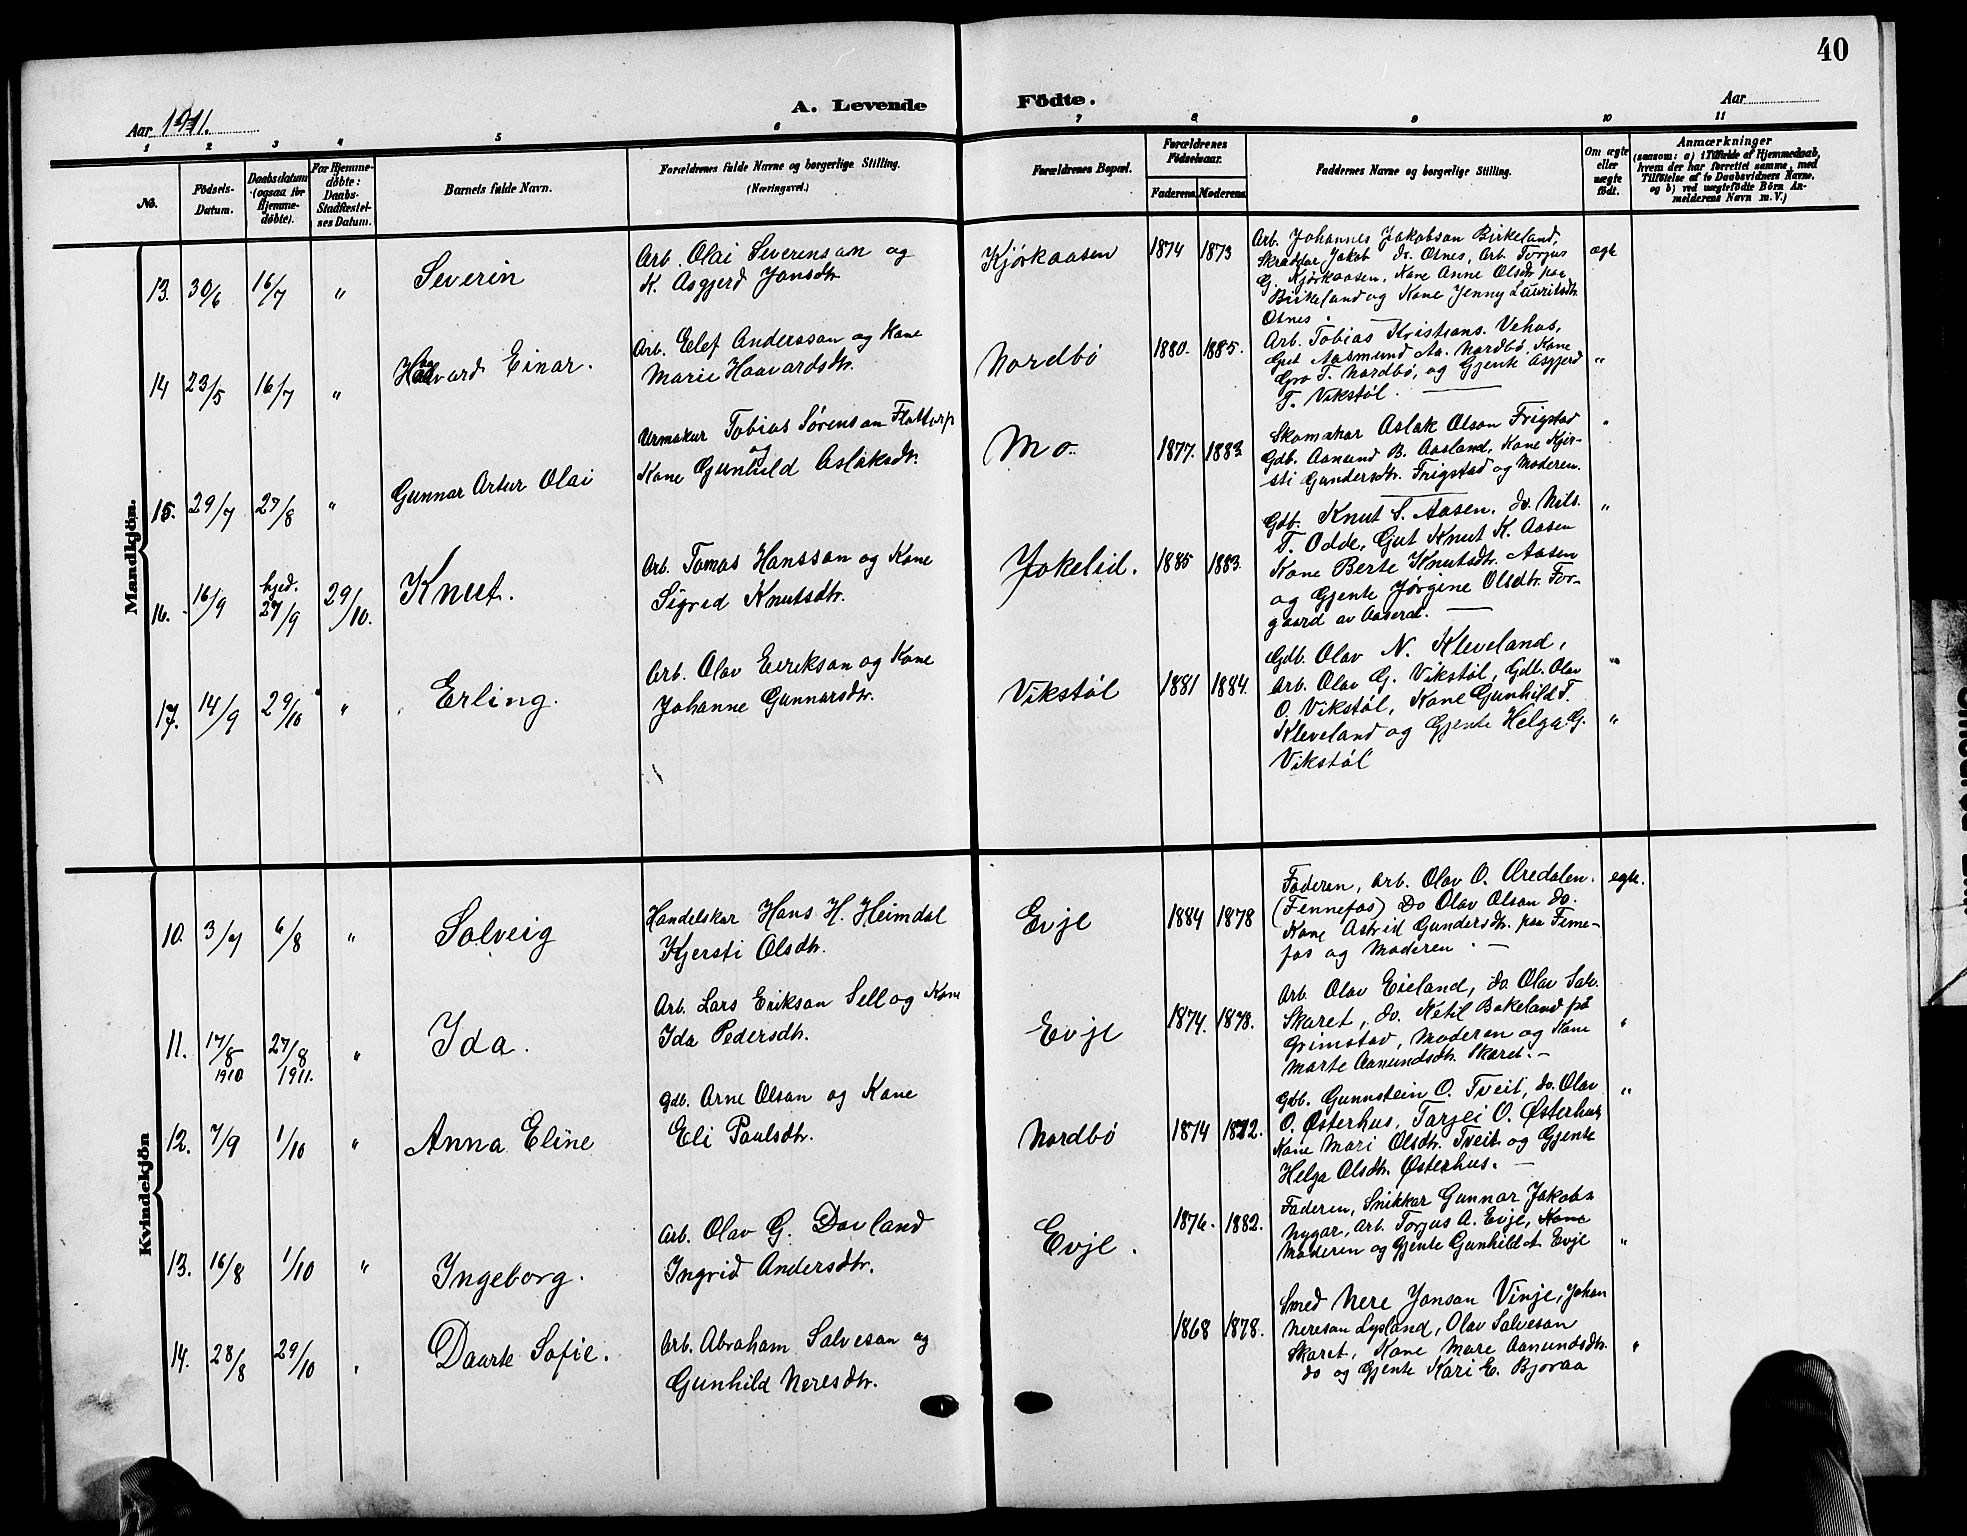 40
A. Levende Födte.
Aar 1911.
Aar
1 2 3 4 5 6 7 8 9 10 11
No.
Födsels-Datum.
Daabsdatum (ogsaa for Hjemmedøbte).
For Hjemmedøbte: Daabs-Stadfæstelses Datum.
Barnets fulde Navn.
Forældrenes fulde Navne og borgerlige Stilling. (Næringsvei.)
Forældrenes Bopæl.
Forældrenes Födselsaar.
Faderens Moderens
Faddernes Navne og borgerlige Stilling.
Om ægte eller uægte födt.
Anmærkninger
(saasom: a) i Tilfælde af Hjemmedaab, hvem der har forrettet samme, med Tilföielse af to Daabsvidners Navne, og b) ved uægtefödte Börn Anmelderens Navn m. V.)
Mandkjön.
13. 30/6 16/7 " Severin
Arb. Olai Severensan og
K. Asgjerd Jonsdtr
Kjørkaasen 1874 1873
Arb. Johannes Jakobsan Birkeland,
Skrædder Jakob do. Osnes, Arb. Torjus
G. Kjørkaasen, Kone Anne Olsdtr paa
Birkeland og Kone Jenny Lauritsdtr
Osnes.
egte
14 23/5 16/7 " Haavard Einar.
Arb. Elef Anderssan og Kone
Marie Haavardsdtr.
Nordbö 1880. 1885.
Arb. Tobias Kristians. Vehus,
Gut Aasmund Aa. Nordbø, Kone
Gro T. Nordbø, og Gjente Asgjerd
T. Vikstøl.
"
15. 29/7 27/8 " Gunnar Artur Olai
Urmakur Tobias Sørensan Flattorp
og
Kone Gunhild Aslaksdtr.
Mo 1877. 1883.
Skomakar Aslak Olson Frigstad
Gdb. Aanund B. Aasland, Kone Kjersti
Gundersdtr. Frigstad og Moderen.
"
16. 16/9 hjed. 27/9 29/10. Knut.
Arb. Tomas Hanssan og Kone
Sigrid Knutsdtr.
Jokelid. 1885 1883.
Gdb. Knut S. Aasen, do. Nils
T. Odde, Gut Knut K. Aasen
Kone Berte Knutsdtr. Aasen
og Gjente Jørgine Olsdtr. For-
gaard av Aaseral.
"
17. 14/9 29/10 " Erling.
Arb. Olav Eerikson og Kone
Johanne Gunnarsdtr.
Vikstøl 1881 1884.
Gdb. Olav N. Kleveland,
Arb. Olav G. Vikstøl, Gdb. Olav
O. Vikstøl, Kone Gunhild T.
Kleveland og Gjente Helga G.
Vikstøl
"
"
Kvindekjön
10. 3/7 6/8 " Solveig
Handelskar Hans H. Heimdal
Kjersti Olsdtr.
Evje 1884 1878
Faderen, Arb. Olav O. Uredalen.
(Fennefos) Do Olav Olsan do.
Kone Astrid Gundersdtr. paa Fenne-
fos og Moderen.
egte.
11. 17/8 1910 27/8 1911. " Ida.
Arb. Lars Erikson Sell og Kone
Ida Pedersdtr.
Evje 1874. 1878.
Arb. Olav Eieland, do. Olav Salv.
Skaret, do. Ketil Bakeland på
Grimstad, Moderen og Kone
Marte Aanundsdtr. Skaret.
"
12. 7/9 1/10 " Anna Eline
Gdb. Arne Olsan og Kone
Eli Paulsdtr.
Nordbö 1874 1872.
Gdb. Gunnstein O. Tveit, do. Olav
O. Østerhus, Tarjei O. Østerhus
Kone Mari Olsdtr. Tveit og Gjente
Helga Olsdtr. Østerhus.
"
13. 16/8 1/10 " Ingeborg.
Arb. Olav G. Dovland
Ingrid Andersdtr.
Evje. 1876. 1882.
Faderen, Snikkar Gunnar Jakobs.
Nygar, Arb. Torjus A. Evje, Kone
Moderen og Gjente Gunhild A. Evje
"
14. 28/8 29/10 " Daarte Sofie.
Arb. Abraham Salvesan og
Gunhild Neresdtr.
1868 1878.
Smed Nere Jonsan Vinje, Johan
Neresan Lysland, Olav Salvesan
Skaret, Kone Mare Aanundsdtr.
do og Gjente Kari E. Bjoraa
"